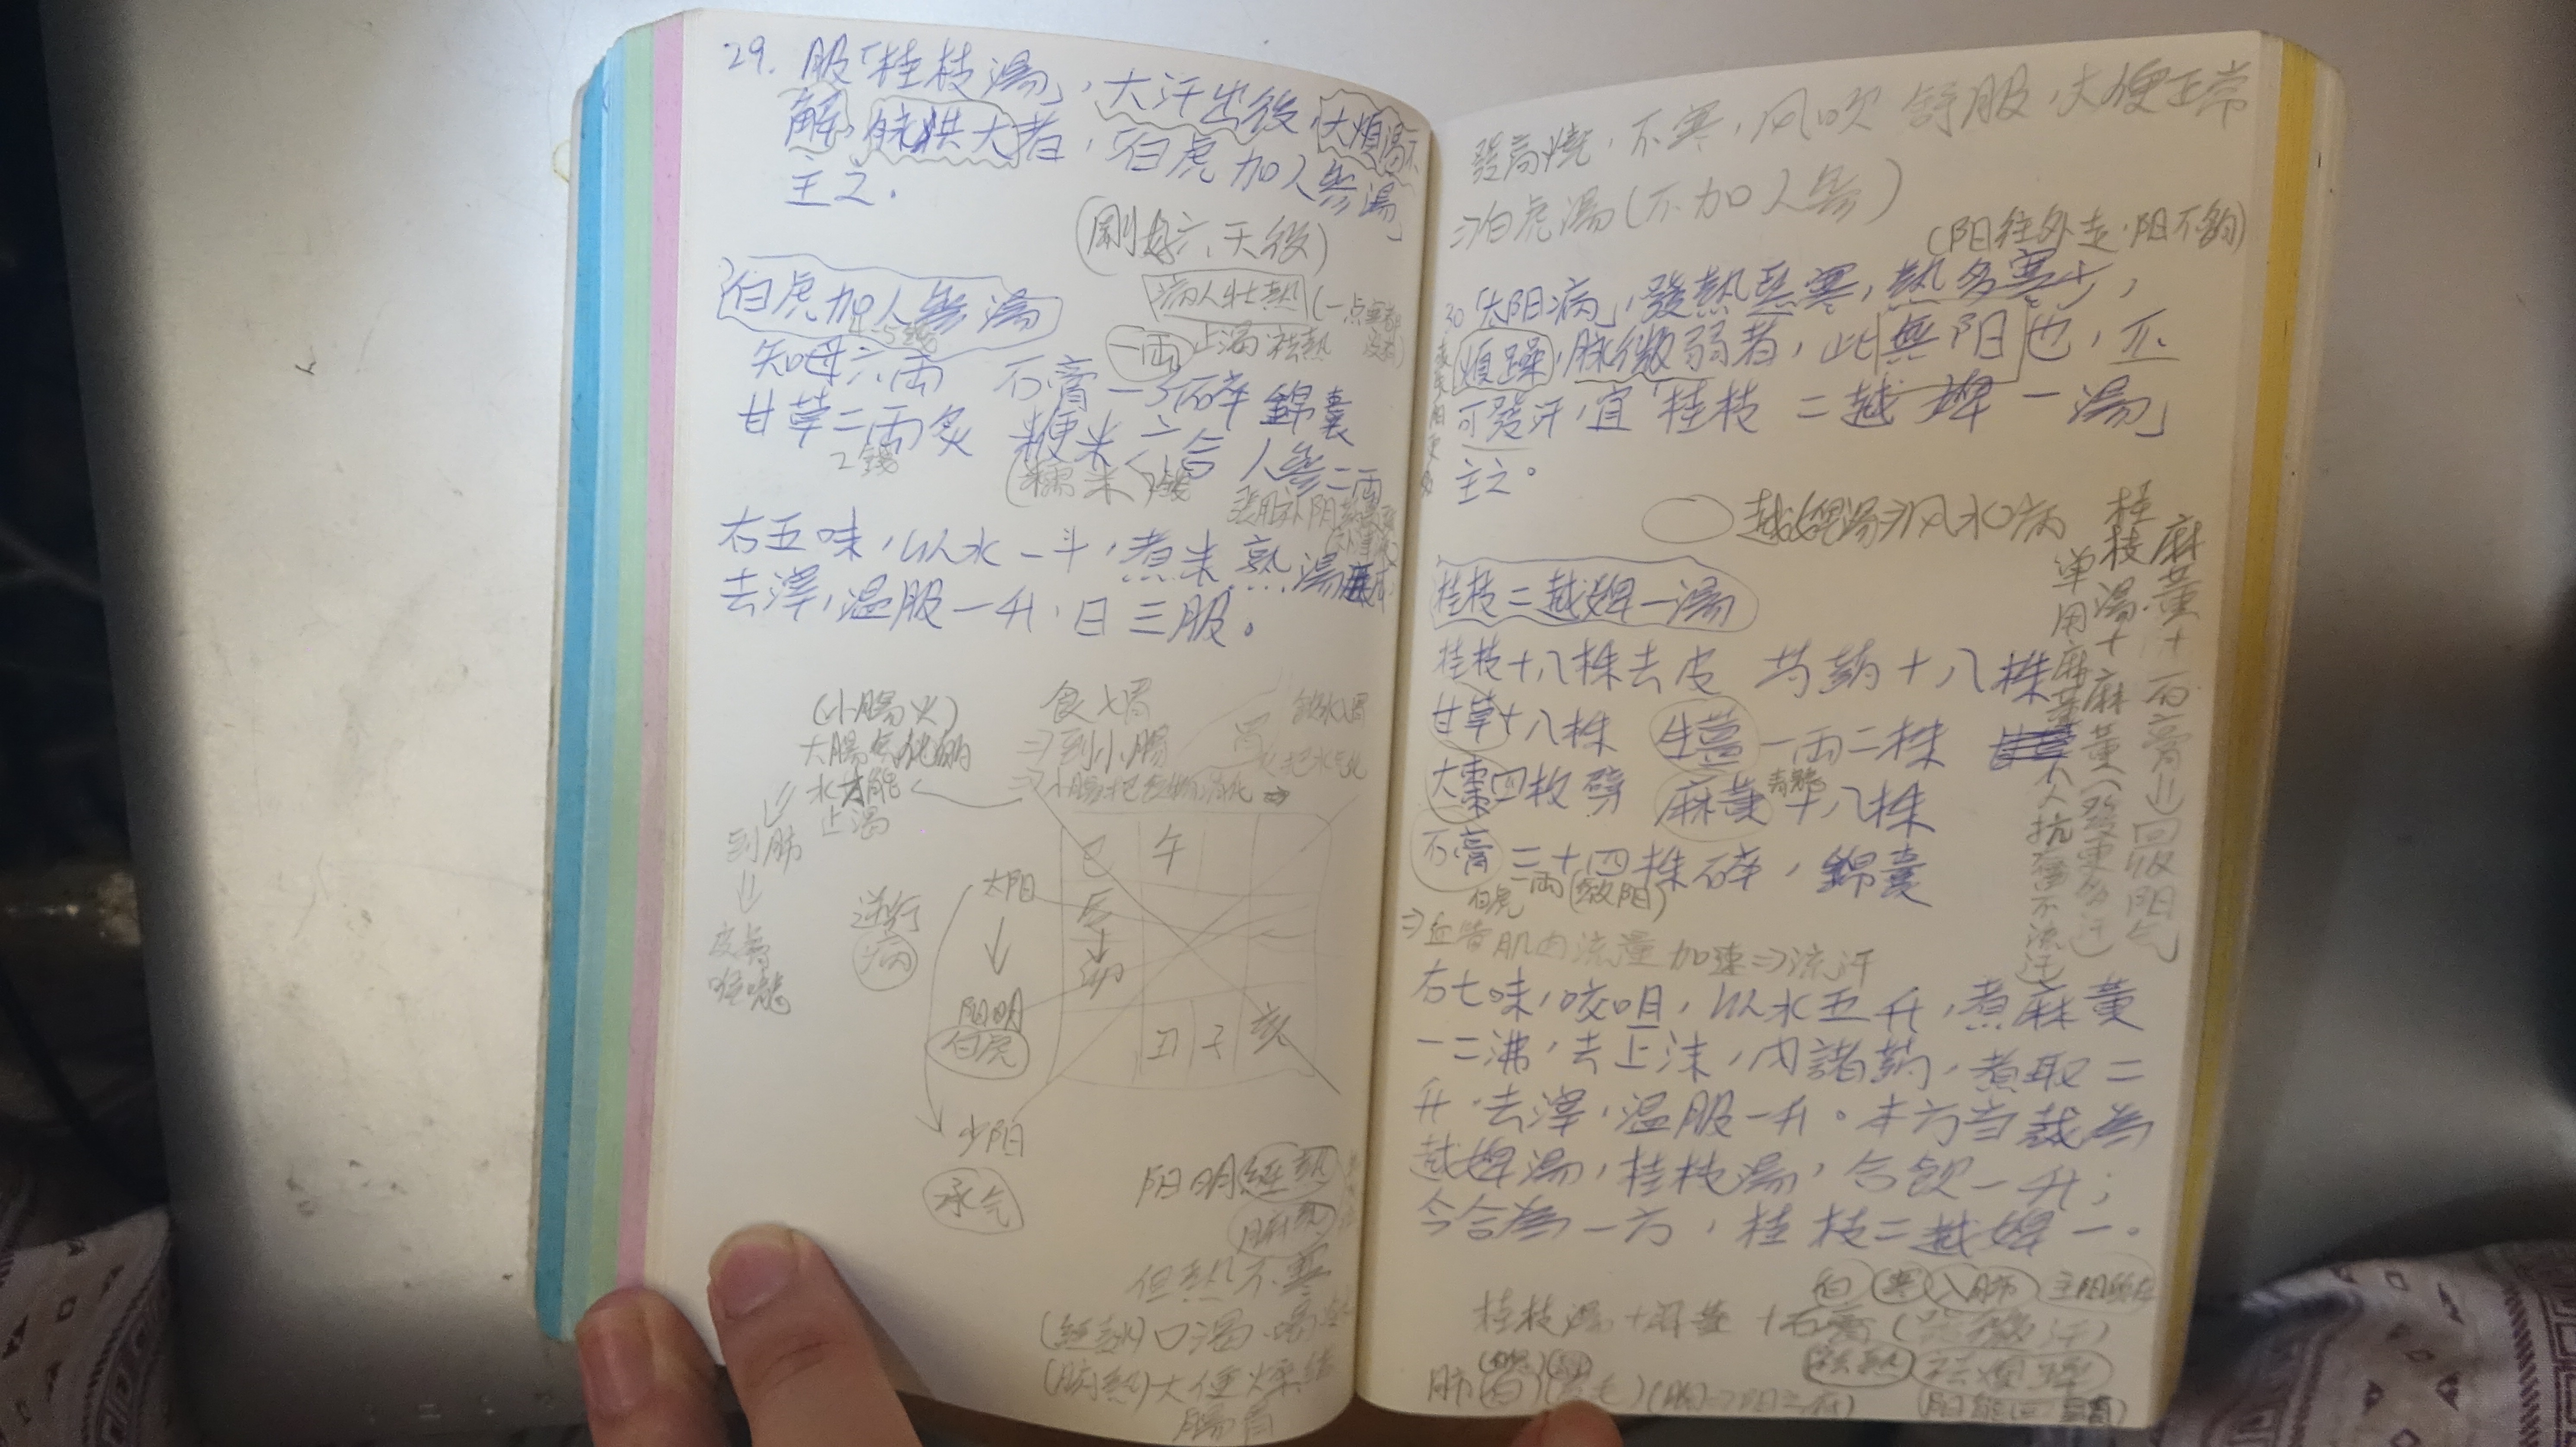 29. 服「桂枝湯」,大汗出後,大煩渴不
解,脉洪大者,「白虎加人參湯」
主之。
(剛好六、天後)
白虎加人參湯
病人壯熱(一点寒都没有)
一両 止渴 祛熱
知母六両 石膏一斤碎 錦囊
甘草二両炙 粳米六合 人參二両
2錢 (糯米)
右五味,以水一斗,煮米熟湯成,
去滓,温服一升,日三服。
(小腸火)
大腸气化的
水才能
止渴
到肺
食入胃
⇒到小腸
把水气化
巳 午
辰
卯
丑 子 亥
逆行
病
太阳
阳明
白虎
少阳
承气
阳明經熱
腑熱
但熱不寒
(經熱)口渴
(腑熱)大便燥結
腸胃
發高燒,不寒,风吹 舒服,大便正常
⇒白虎湯(不加人參)
(阳往外走·阳不夠)
30「太阳病」,發熱惡寒,熱多寒少,
煩躁,脉微弱者,此無阳也,不
可發汗,宜「桂枝二越婢一湯」
主之。
越婢湯⇒风水病
桂枝二越婢一湯
桂枝十八株去皮 芍葯十八株
甘草十八株 生薑一両二株
大棗四枚劈 麻黄十八株
青龍
石膏三十四株碎,錦囊
白虎 一両
⇒血管肌肉流量 加速⇒流汗
右七味,㕮咀,以水五升,煮麻黄
一二沸,去上沫,内諸葯,煮取二
升,去滓,温服一升。本方當裁為
越婢湯,桂枝湯,合飲一升;
今合為一方,桂枝二越婢一。
麻黄十石膏⇒回收阳气
桂枝湯十麻黄(發更多汗)
单用麻黄
白 寒 入肺
桂枝湯+麻黄+石膏
祛熱 祛煩躁